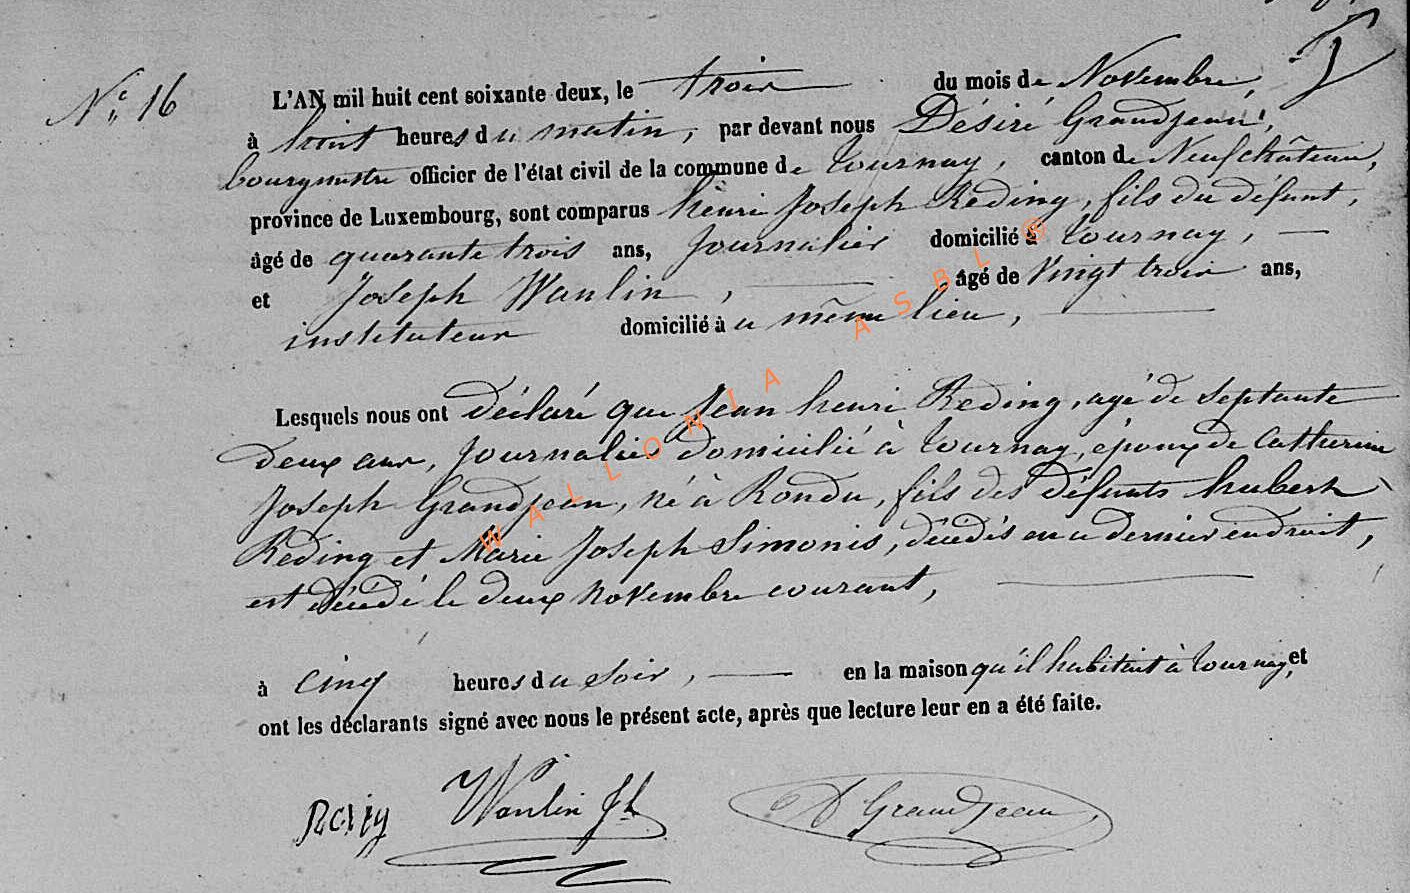 N° 16
L'AN mil huit cent soixante deux, le trois du mois de Novembre,
à huit heures du matin, par devant nous Désiré Grandjean,
bourgmestre officier de l'état civil de la commune de Tournay, canton de Neufchâteau,
province de Luxembourg, sont comparus henri Joseph Reding, fils du défunt,
âgé de quarante trois ans, Journalier domicilié à Tournay,
et Joseph Wanlin, âgé de Vingt trois ans,
instituteur domicilié au même lieu,
Lesquels nous ont déclaré que Jean henri Reding, agé de septante
deux ans, Journalier domicilié à Tournay, époux de Catherine
Joseph Grandjean, né à Rondu, fils des défunts hubert
Reding et Marie Joseph Simonis, décédés en ce dernier endroit,
est décédé le deux novembre courant,
à cinq heures du soir, en la maison qu'il habitait à Tournay, et
ont les déclarants signé avec nous le présent acte, après que lecture leur en a été faite.
Wanlin Jh
D Grandjean
WALLONIA ASBL ®